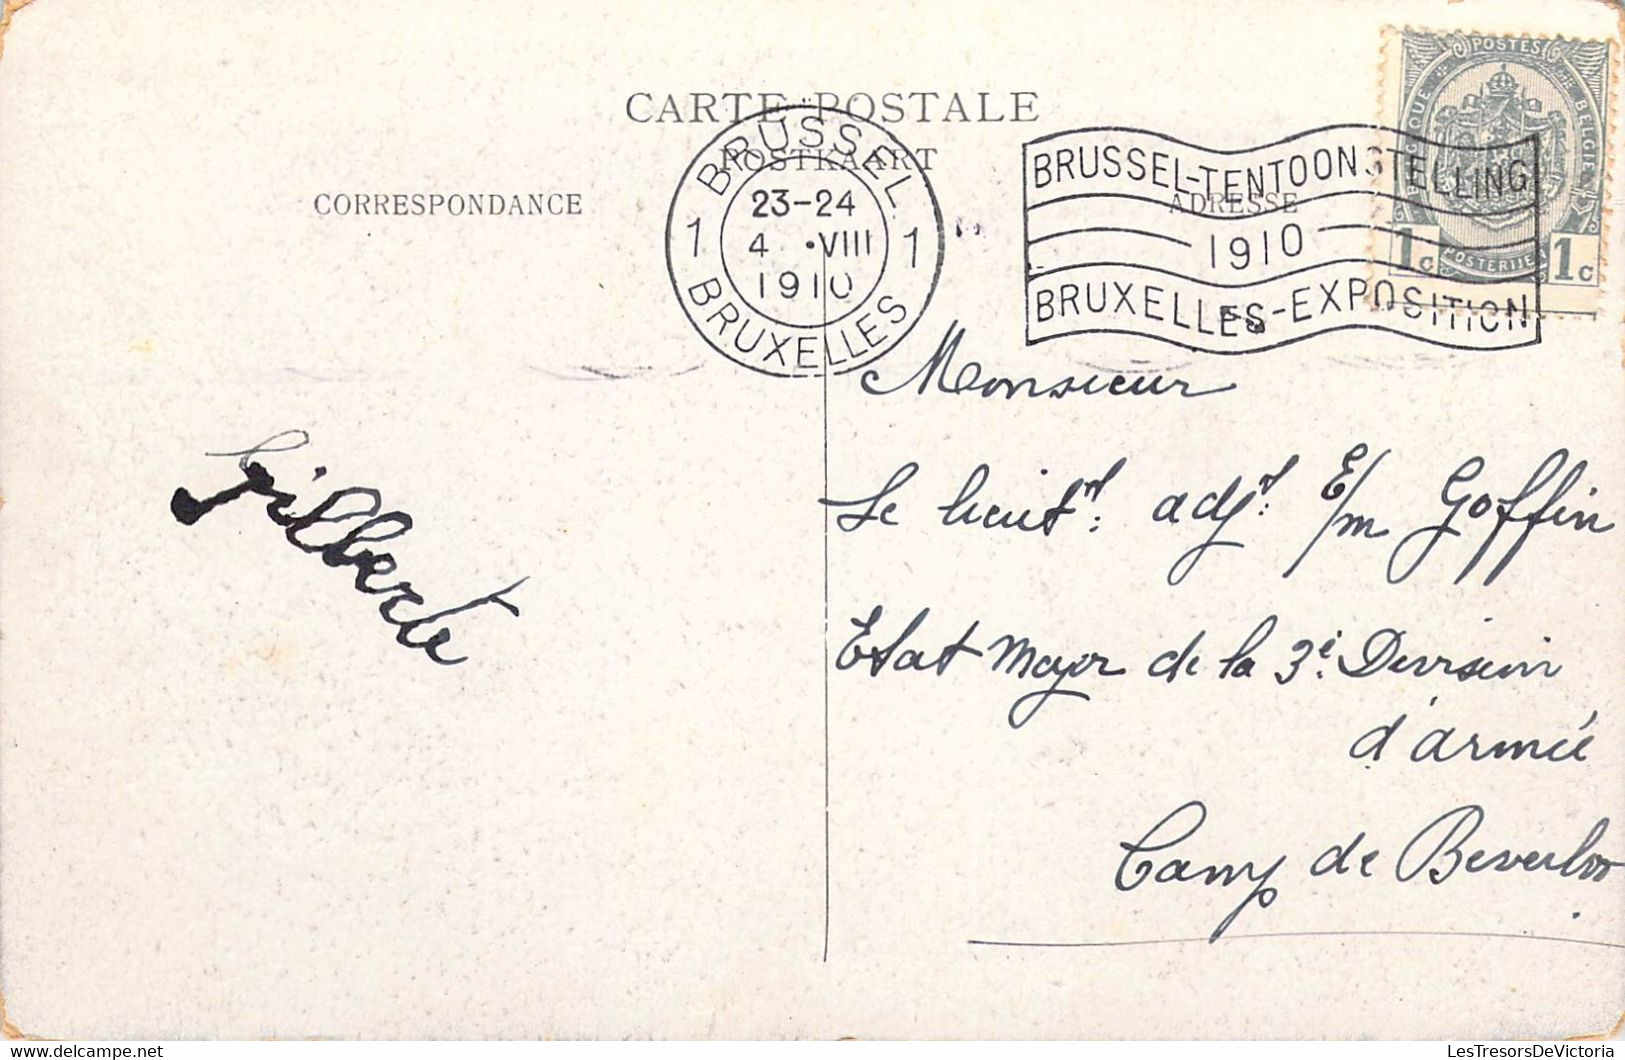 CARTE POSTALE
POSTKAART
CORRESPONDANCE
ADRESSE
BRUSSEL
1 1
23-24
4 •VIII
1910
BRUXELLES
BRUSSEL-TENTOONSTELLING
1910
BRUXELLES-EXPOSITION
POSTES
BELGIQUE BELGIË
POSTERIJEN
1c 1c
Monsieur
Le lieutnt: adjt: E/m Goffin
Etat Major de la 3e: Division
d'armée
Camp de Beverloo
Gilberte
delcampe.net
LesTresorsDeVictoria